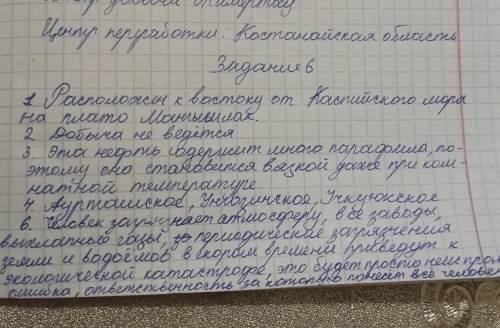 Центр переработки: Костанайская область
Задание 6
1. Расположен к востоку от Каспийского моря
на плато Мангышлак.
2. Добыча не ведётся
3. Эта нефть содержит много парафина, по-
этому она становится вязкой даже при ком-
натной температуре
4. Узенское, Учкуюкское
6. Человек загрязняет атмосферу, все заводы,
выхлапные газы, периодические загрязнения
земли и водоёмов в скором времени приведут к
экологической катастрофе, это будет просто неисправ
ошибка, ответственность за которую понесёт всё человеч